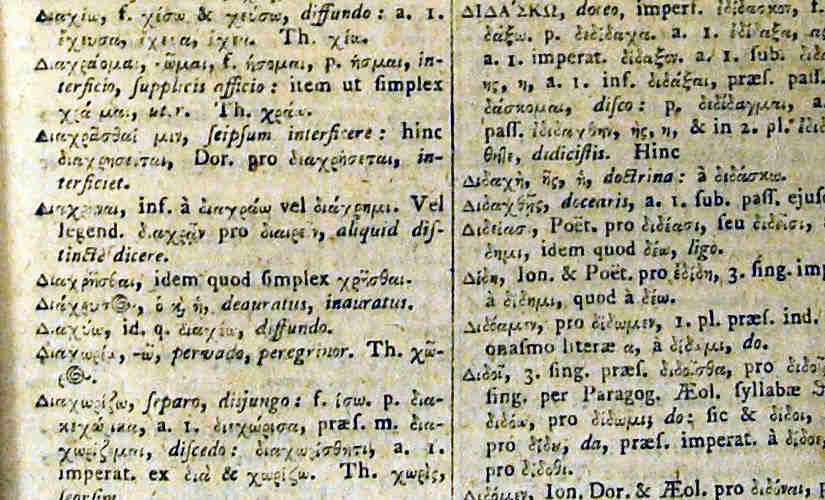 Διαχέω, f. χέσω & χεύσω, diffundo: a. 1.
ἔχευσα, ἔχεα, ἔχεα. Th. χέω.
Διαχράομαι, -ῶμαι, f. ήσομαι, p. ησμαι, in-
terficio, supplicis afficio: item ut simplex
χράομαι, utor. Th. χράω.
Διαχρᾶσθαί μιν, seipsum interficere: hinc
διαχρήσεται, Dor. pro διαχρήσεται, in-
terficiet.
inf. à vel διάχρημι. Vel
legend. pro aliquid dis-
tinctè dicere.
Διαχρῆσθαι, idem quod simplex χρῆσθαι.
Διάχρυσος, ὁ ϗ ἡ, deauratus, inauratus.
Διαχύω, id. q. διαχέω, diffundo.
Διαχωρέω, -ῶ, pervado, peregrinor. Th. χῶ-
ρος.
Διαχωρίζω, separo, disjungo: f. ίσω. p. δια-
κεχώρικα, a. 1. διεχώρισα, præs. m. δια-
χωρίζομαι, discedo: διαχωρίσθητι, a. 1.
imperat. ex διὰ & χωρίζω. Th. χωρὶς,
seorsim
ΔΙΔΑ'ΣΚΩ, doceo, imperf. ἐδίδασκον, f.
διδάξω. p. δεδίδαχα. a. 1. ἐδίδαξα,
a. 1. imperat. δίδαξον. a. 1. sub.
ῃς, ῃ, a. 1. inf. διδάξαι, præs. pass.
δάσκομαι, disco: p. δεδίδαγμαι, a.
pass. ἐδιδάχθην, ης, η, & in 2. pl.
θητε, didicistis. Hinc
Διδαχὴ, ῆς, ἡ, doctrina: à διδάσκω.
Διδαχθῇς, docearis, a. 1. sub. pass. ejusd
Διδέασι, Poët. pro διδέασι, seu διδεῖσι,
δημι, idem quod δέω, ligo.
Δίδη, Ion. & Poët. pro ἐδίδη, 3. sing. imp
à δίδημι, quod à δέω.
Διδόαμεν, pro δίδωμεν, 1. pl. præs. ind.
onasmo literæ α, à δίδωμι, do.
Διδοῖ, 3. sing. præs. διδοῖσθα, pro
sing. per Paragog. Æol. syllabæ
διδόω, pro δίδωμι, do: sic & δίδοι,
pro δίδου, da, præs. imperat. à
pro δίδοθι.
Διδόμεν, Ion. Dor. & Æol. pro διδόναι,